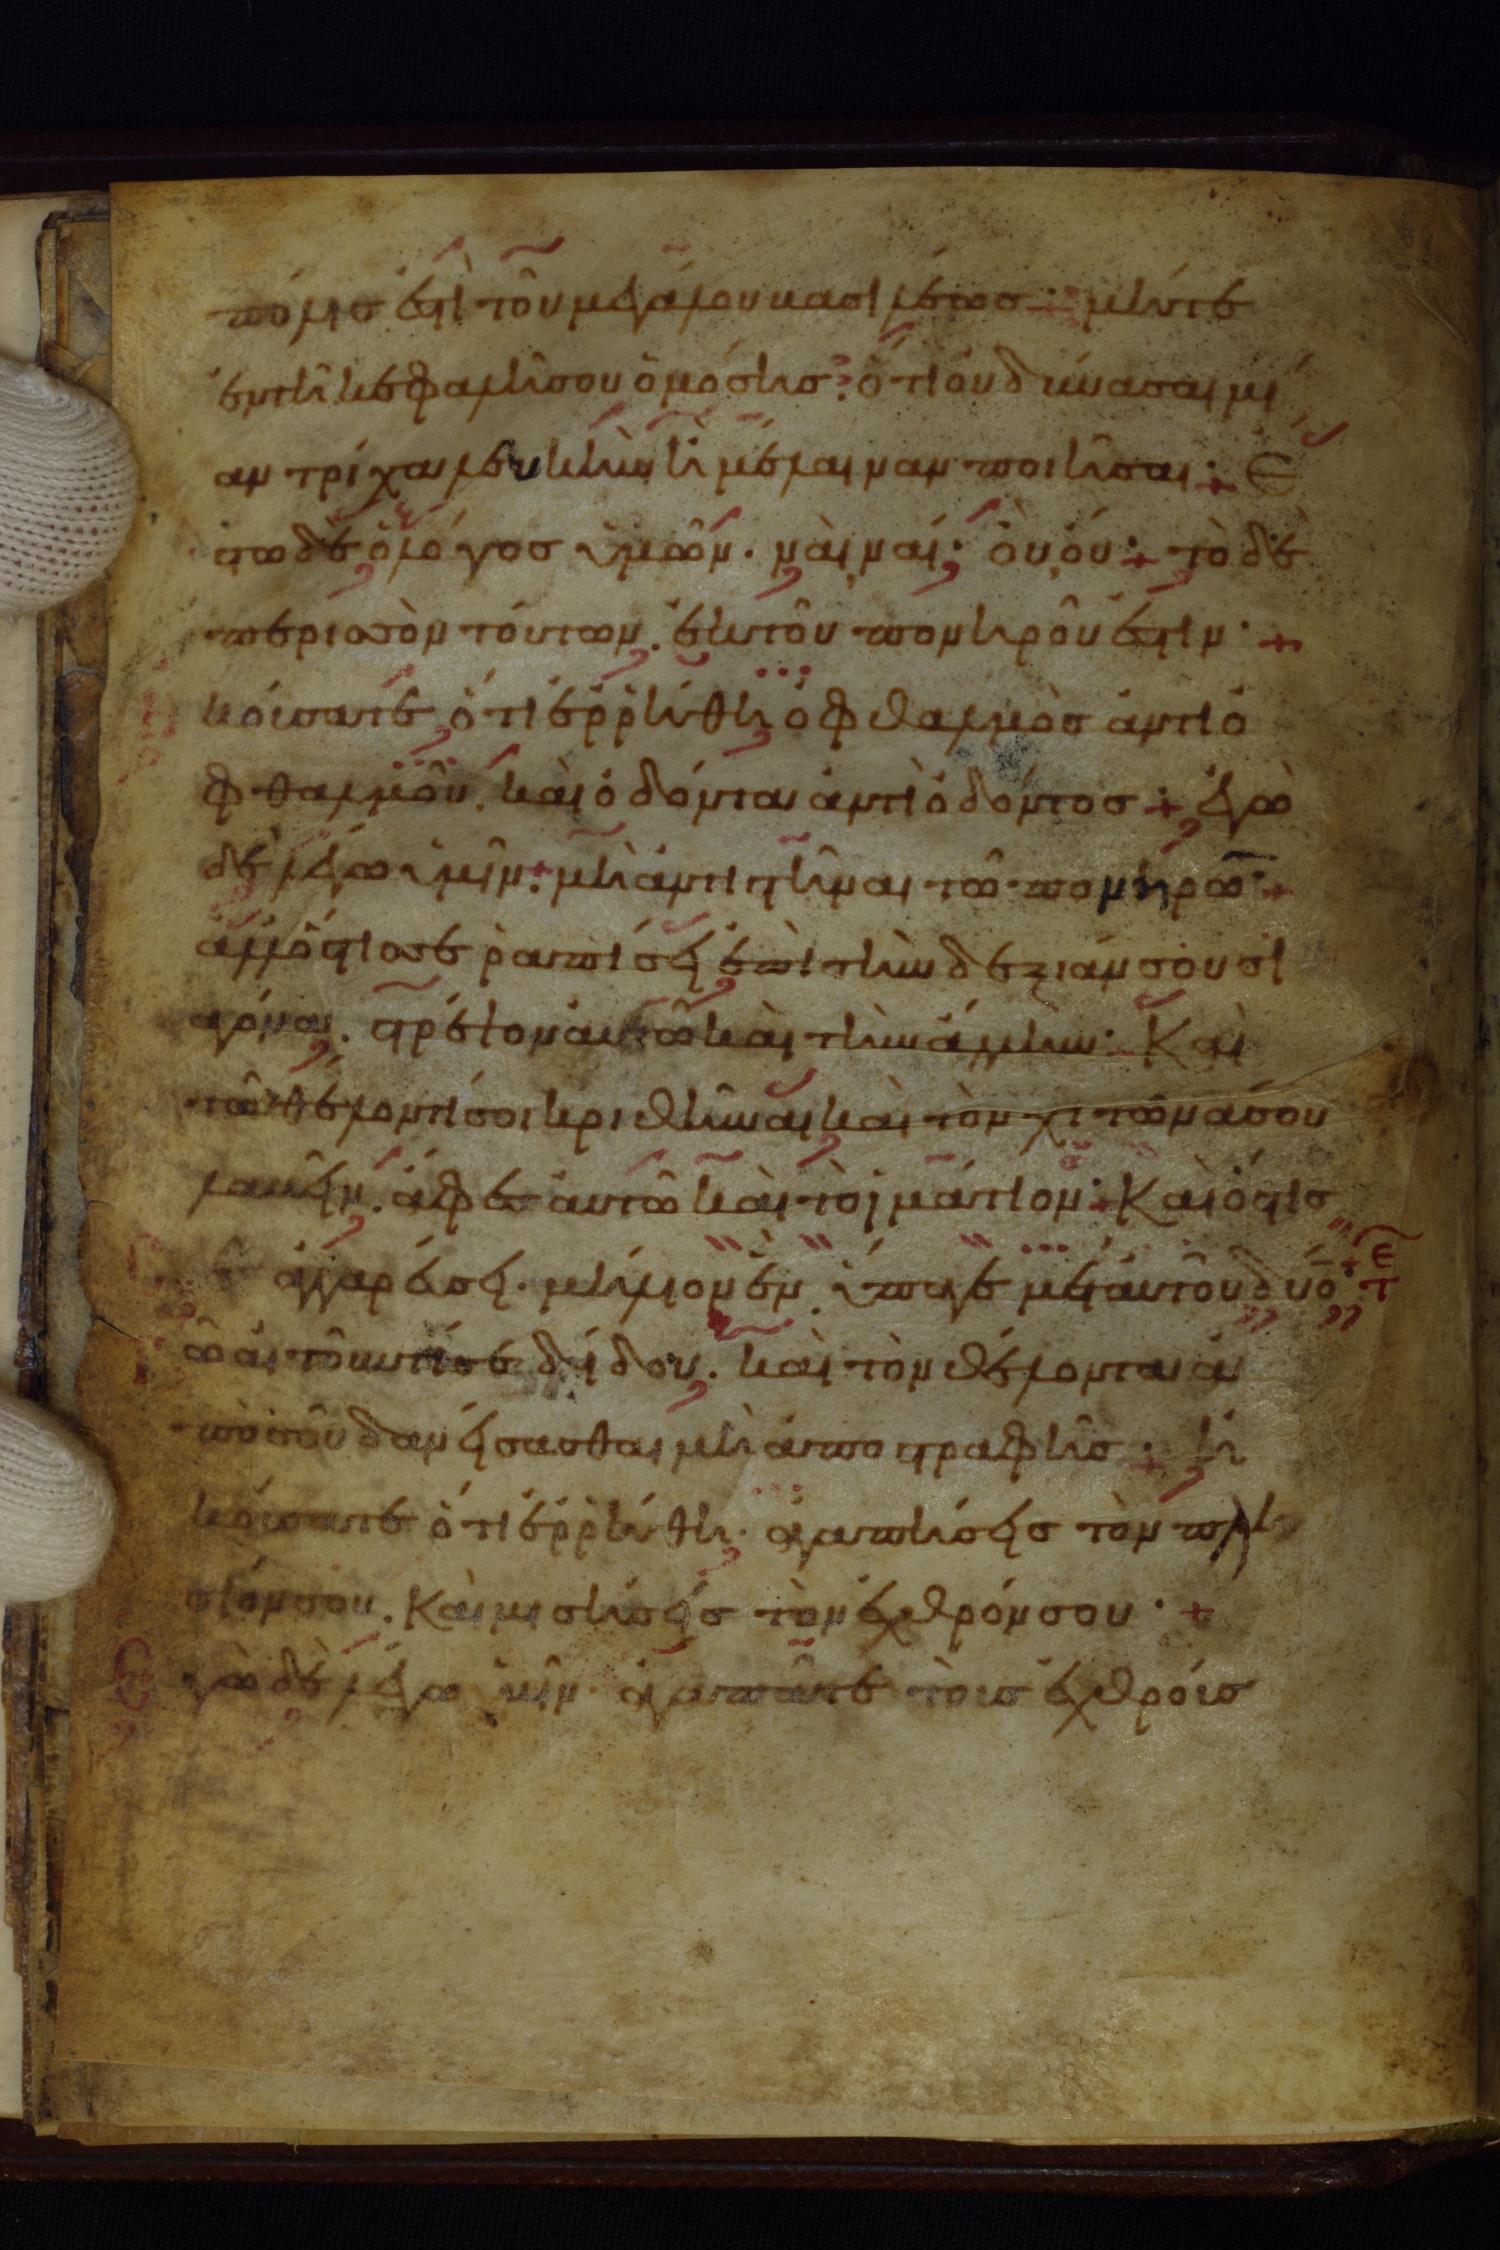 πόλις ἐστὶ τοῦ μεγάλου βασιλέως + μήτε
ἐν τῆ κεφαλῆ σου ὀμόσης· ὅτι οὐ δύνασαι μί
αν τρίχα λευκὴν ἢ μέλαιναν ποιῆσαι + Ἔ
στω δὲ ὁ λόγος ὑμῶν· ναὶ ναί· οὐ οὔ + τὸ δὲ
περισσὸν τούτων. ἐκ τοῦ πονηροῦ ἐστιν· +
ἠκούσατε ὅτι ἐρρήθη ὀφθαλμὸς ἀντὶ ὀ
φθαλμοῦ. καὶ ὀδόντα ἀντὶ ὀδόντος + ἐγὼ
δὲ λέγω ὑμῖν + μὴ ἀντιστῆναι τῶ πονηρῶ +
ἀλλ' ὅστις σε ῥαπίσει ἐπὶ τὴν δεξιάν σου σι
αγόνα. στρέψον αὐτῶ καὶ τὴν ἄλλην· Καὶ
τῶ θέλοντί σοι κριθῆναι καὶ τὸν χιτῶνά σου
λαβεῖν. ἄφες αὐτῶ καὶ τὸ ἱμάτιον + Καὶ ὅστις
σε ἀγγαρεύσει· μίλιον ἕν. ὕπαγε μετ' αὐτοῦ δύο + τ
ῶ αἰτοῦντί σε δίδου. καὶ τὸν θέλοντα ἀ
πὸ σοῦ δανείσασθαι μὴ ἀποστραφῆς + ἠ
κούσατε ὅτι ἐρρήθη· ἀγαπήσεις τὸν πλη
σίον σου. Καὶ μισήσεις τὸν ἐχθρόν σου · +
Ἐγὼ δὲ λέγω ὑμῖν· ἀγαπᾶτε τοὺς ἐχθροὺς